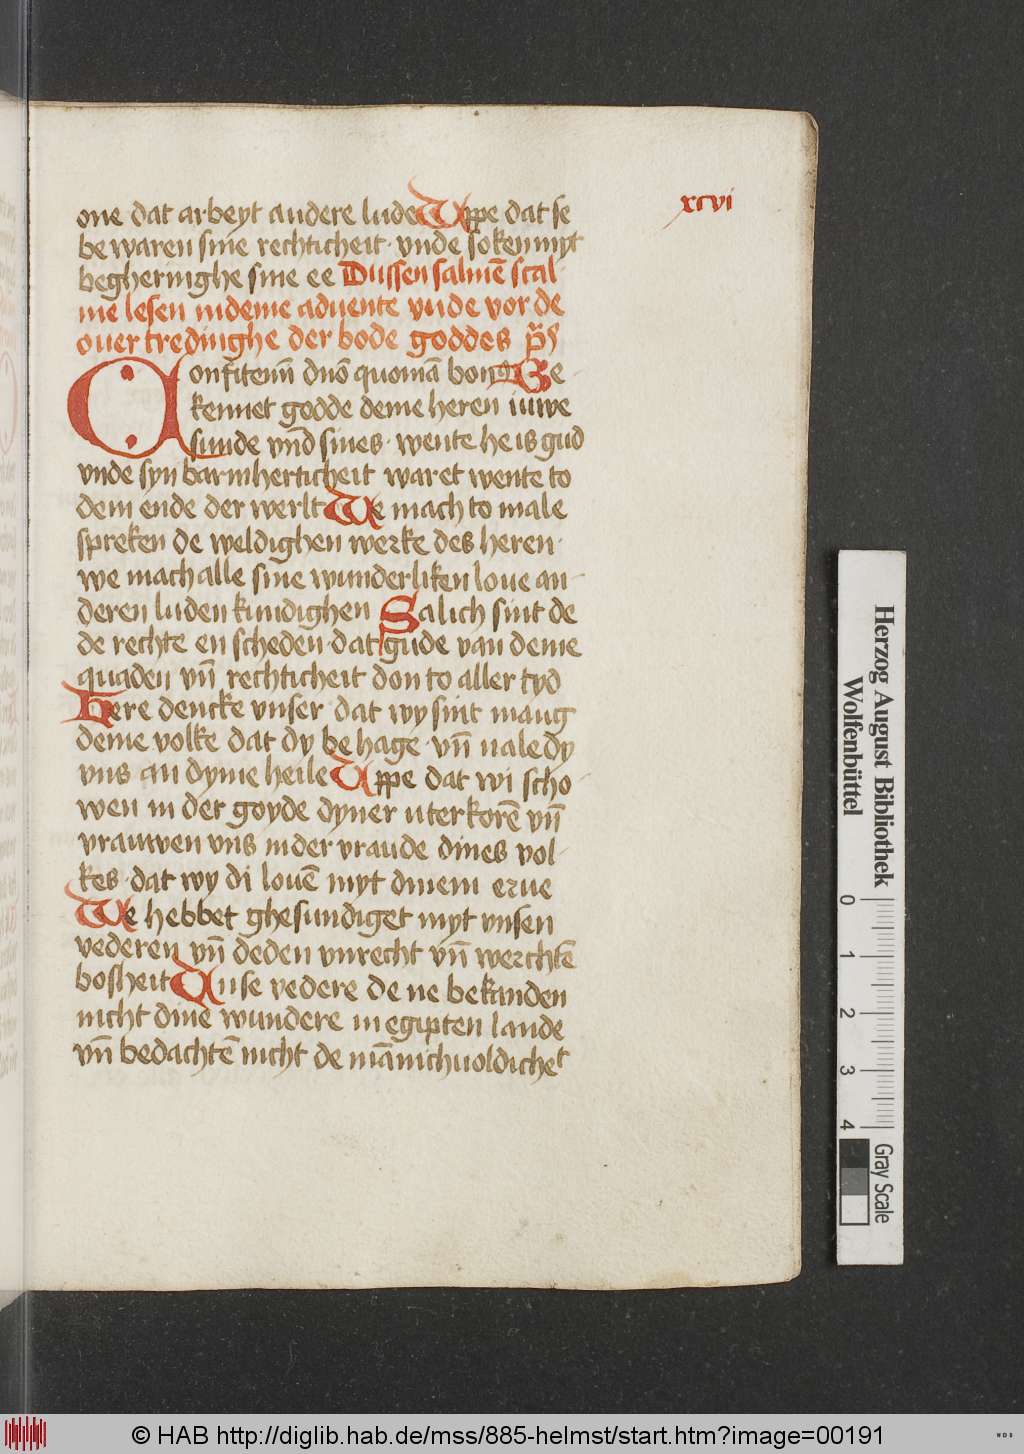 xcvi
one dat arbeyt andere lude Uppe dat se
be waren sine rechticheit · vnde soken myt
begheringhe sine ee Dussen salmē scal
me lesen in deme aduente vnde vor de
ouer tredinghe der bode goddes p̄s
Confitem̄ dn̄o quoniā bon9 Be
kennet godde deme heren iuwe
sunde vnd sines · wente he is gud
vnde syn barmherticheit waret wente to
dem ende der werlt We mach to male
spreken de weldighen werke des heren ·
we mach alle sine wunderliken loue an
deren luden kundighen Salich sint de
de rechte en scheden · dat gude van deme
quaden vn̄ rechticheit don to aller tyd
Here dencke vnser dat wy sint mang
deme volke dat dy be hage · vn̄ nale dy
vns an dyme heile Uppe dat wi scho
wen in der goyde dyner uterkorē vn̄
vrauwen vns in der vraude dines vol
kes · dat wy di louē myt dinem erue
We hebbet ghesundiget myt vnsen
vederen vn̄ deden vnrecht vn̄ werchtē
bosheit Vnse vedere de ne bekanden
nicht dine wundere in egipten lande
vn̄ bedachtē nicht de mānichuoldichet
Herzog August Bibliothek
Wolfenbüttel
0 1 2 3 4
Gray Scale
© HAB http://diglib.hab.de/mss/885-helmst/start.htm?image=00191
WDB